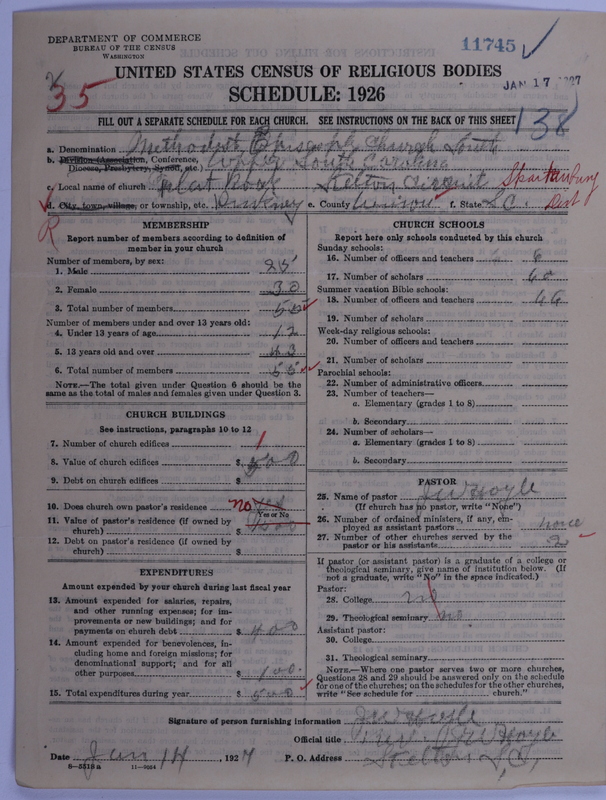 DEPARTMENT OF COMMERCE
BUREAU OF THE CENSUS
WASHINGTON
11745
35
JAN 17 1927
UNITED STATES CENSUS OF RELIGIOUS BODIES
SCHEDULE: 1926
138
FILL OUT A SEPARATE SCHEDULE FOR EACH CHURCH. SEE INSTRUCTIONS ON THE BACK OF THIS SHEET
a. Denomination Methodist Episcopal Church South
b. Division (Association, Conference, Diocese, Presbytery, Synod, etc.) Upper South Carolina
c. Local name of church Flat Rock Kelton Circuit Spartanburg Dist
d. City, town, village, or township, etc. Pinckney e. County Union f. State S.C.
R
MEMBERSHIP
Report number of members according to definition of
member in your church
Number of members, by sex:
1. Male 25
2. Female 30
3. Total number of members 55
Number of members under and over 13 years old:
4. Under 13 years of age 12
5. 13 years old and over 43
6. Total number of members 55
NOTE.—The total given under Question 6 should be the
same as the total of males and females given under Question 3.
CHURCH BUILDINGS
See instructions, paragraphs 10 to 12
7. Number of church edifices 1
8. Value of church edifices $ 500
9. Debt on church edifices $
10. Does church own pastor's residence no yes
Yes or No
11. Value of pastor's residence (if owned by
church) $
12. Debt on pastor's residence (if owned by
church) $
EXPENDITURES
Amount expended by your church during last fiscal year
13. Amount expended for salaries, repairs,
and other running expenses; for im-
provements or new buildings; and for
payments on church debt $ 400
14. Amount expended for benevolences, in-
cluding home and foreign missions; for
denominational support; and for all
other purposes $ 100.
15. Total expenditures during year $ 500
CHURCH SCHOOLS
Report here only schools conducted by this church
Sunday schools:
16. Number of officers and teachers 6
17. Number of scholars 60
Summer vacation Bible schools:
18. Number of officers and teachers
19. Number of scholars
Week-day religious schools:
20. Number of officers and teachers
21. Number of scholars
Parochial schools:
22. Number of administrative officers
23. Number of teachers—
a. Elementary (grades 1 to 8)
b. Secondary
24. Number of scholars—
a. Elementary (grades 1 to 8)
b. Secondary
PASTOR
25. Name of pastor J W Hoyle
(If church has no pastor, write "None")
26. Number of ordained ministers, if any, em-
ployed as assistant pastors none
27. Number of other churches served by the
pastor or his assistants 2
If pastor (or assistant pastor) is a graduate of a college or
theological seminary, give name of institution below. (If
not a graduate, write "No" in the space indicated.)
Pastor:
28. College no
29. Theological seminary no
Assistant pastor:
30. College
31. Theological seminary
NOTE.—Where one pastor serves two or more churches,
Questions 28 and 29 should be answered only on the schedule
for one of the churches; on the schedules for the other churches,
write "See schedule for church."
Signature of person furnishing information J W Hoyle
Official title J W Hoyle
Date Jan 14, 1927 P. O. Address Kelton S.C.
8—5518 a 11—9064